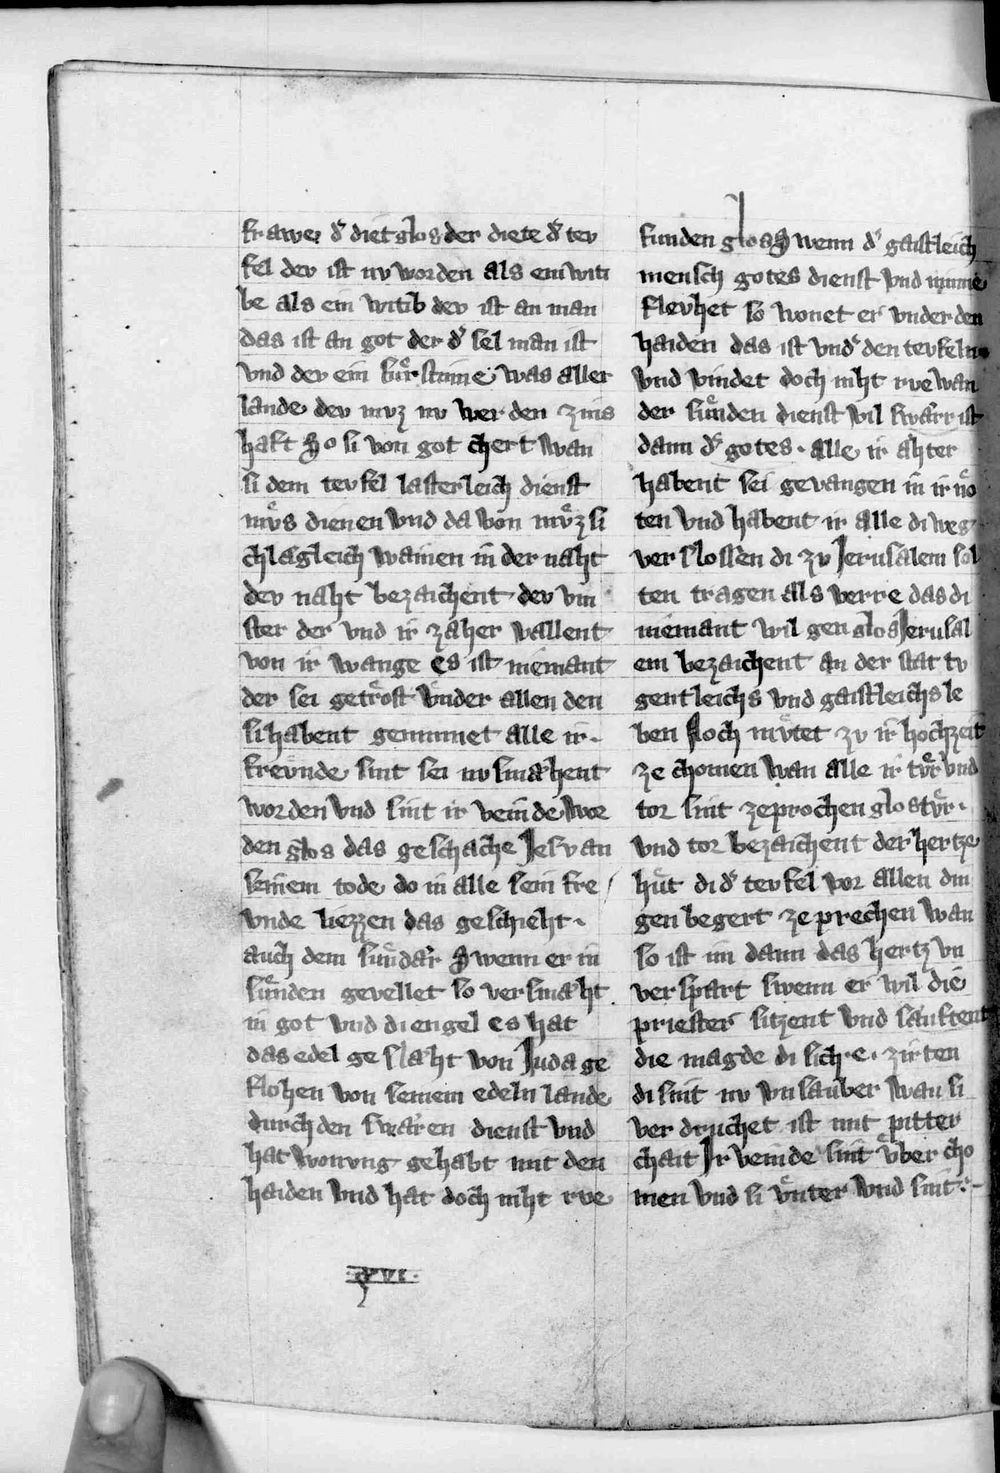 frawe. d͛ diet glos der diete d͛ tev
fel dev ist nv worden als ein witi
be als ein witib dev ist an man
das ist an got der d͛ sel man ist
vnd dev ein fuͤrstinne was aller
lande dev mvz nv werden zins
haft So si von got chert wan
si dem tevfel lasterleich dienst
mvͤs dienen vnd da von mvͤz si
chlagleich wainen in der naht
dev naht bezaichent dev vin
ster der vnd ir zaher vallent
von ir wange es ist niemant
der sei getroͤst vnder allen den
si habent geminnet alle ir
frevnde sint sei nv smahent
worden vnd sint ir veinde wor
den glos das geschache Jesv an
seinem tode do in alle sein fre
vnde liezzen das geschieht
auch dem suͤndar Swenn er in
suͤnden gevellet so versmaht
in got vnd di engel es hat
das edel geslaht von Juda ge
flohen von seinem edeln lande
durch den swaren dienst vnd
hat wonvng gehabt mit den
haiden vnd hat doch niht rve
xvi.
funden glos Swenn d͛ gaistleich
mensch gotes dienst vnd minne
flevhet so wonet er vnder den
haiden das ist vnd͛ den tevfeln
vnd vindet doch niht rve wan
der suͤnden dienst vil swarr ist
dann d͛ gotes. alle ir ahter
habent sei gevangen in ir noͤ
ten vnd habent ir alle di weg
verslossen di zv Jerusalem sol
ten tragen als verre das di
niemant wil gen glos Jerusal
em bezaichent an der stat tv
gentleichs vnd gaistleichs le
ben Noch muͤtet zv ir hochzeit
ze chomen wan alle ir tvͤr vnd
tor sint zeprochen glos tvͤr.
vnd tor bezaichent der hertze
huͤt di d͛ tevfel vor allen din
gen begert ze prechen wan
so ist im dann das hertz vn
verspart swenn er wil die
priester sitzent vnd sauftent
die magde di sich e. zirten
di sint nv vnsauber wan si
verdruchet ist mit pitter
chait Ir veinde sint vͤber cho
men vnd si vͤnter vnd sint.